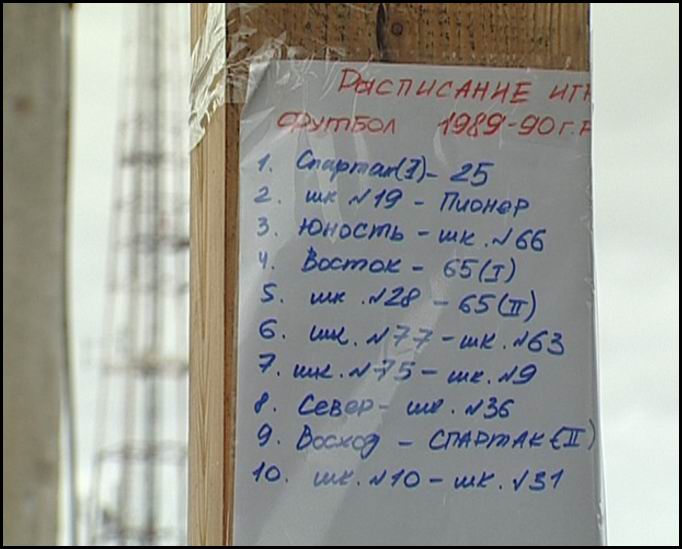 Расписание игр
футбол 1989-90 г.р
1. Спартак(I)- 25
2. шк №19 - Пионер
3. Юность - шк. №66
4. Восток - 65(I)
5. шк. №28 - 65(II)
6. шк. №77 - шк. №63
7. шк. №75 - шк. №9
8. Север- шк. №36
9. Восход - СПАРТАК(II)
10. шк. №10 - шк. №31